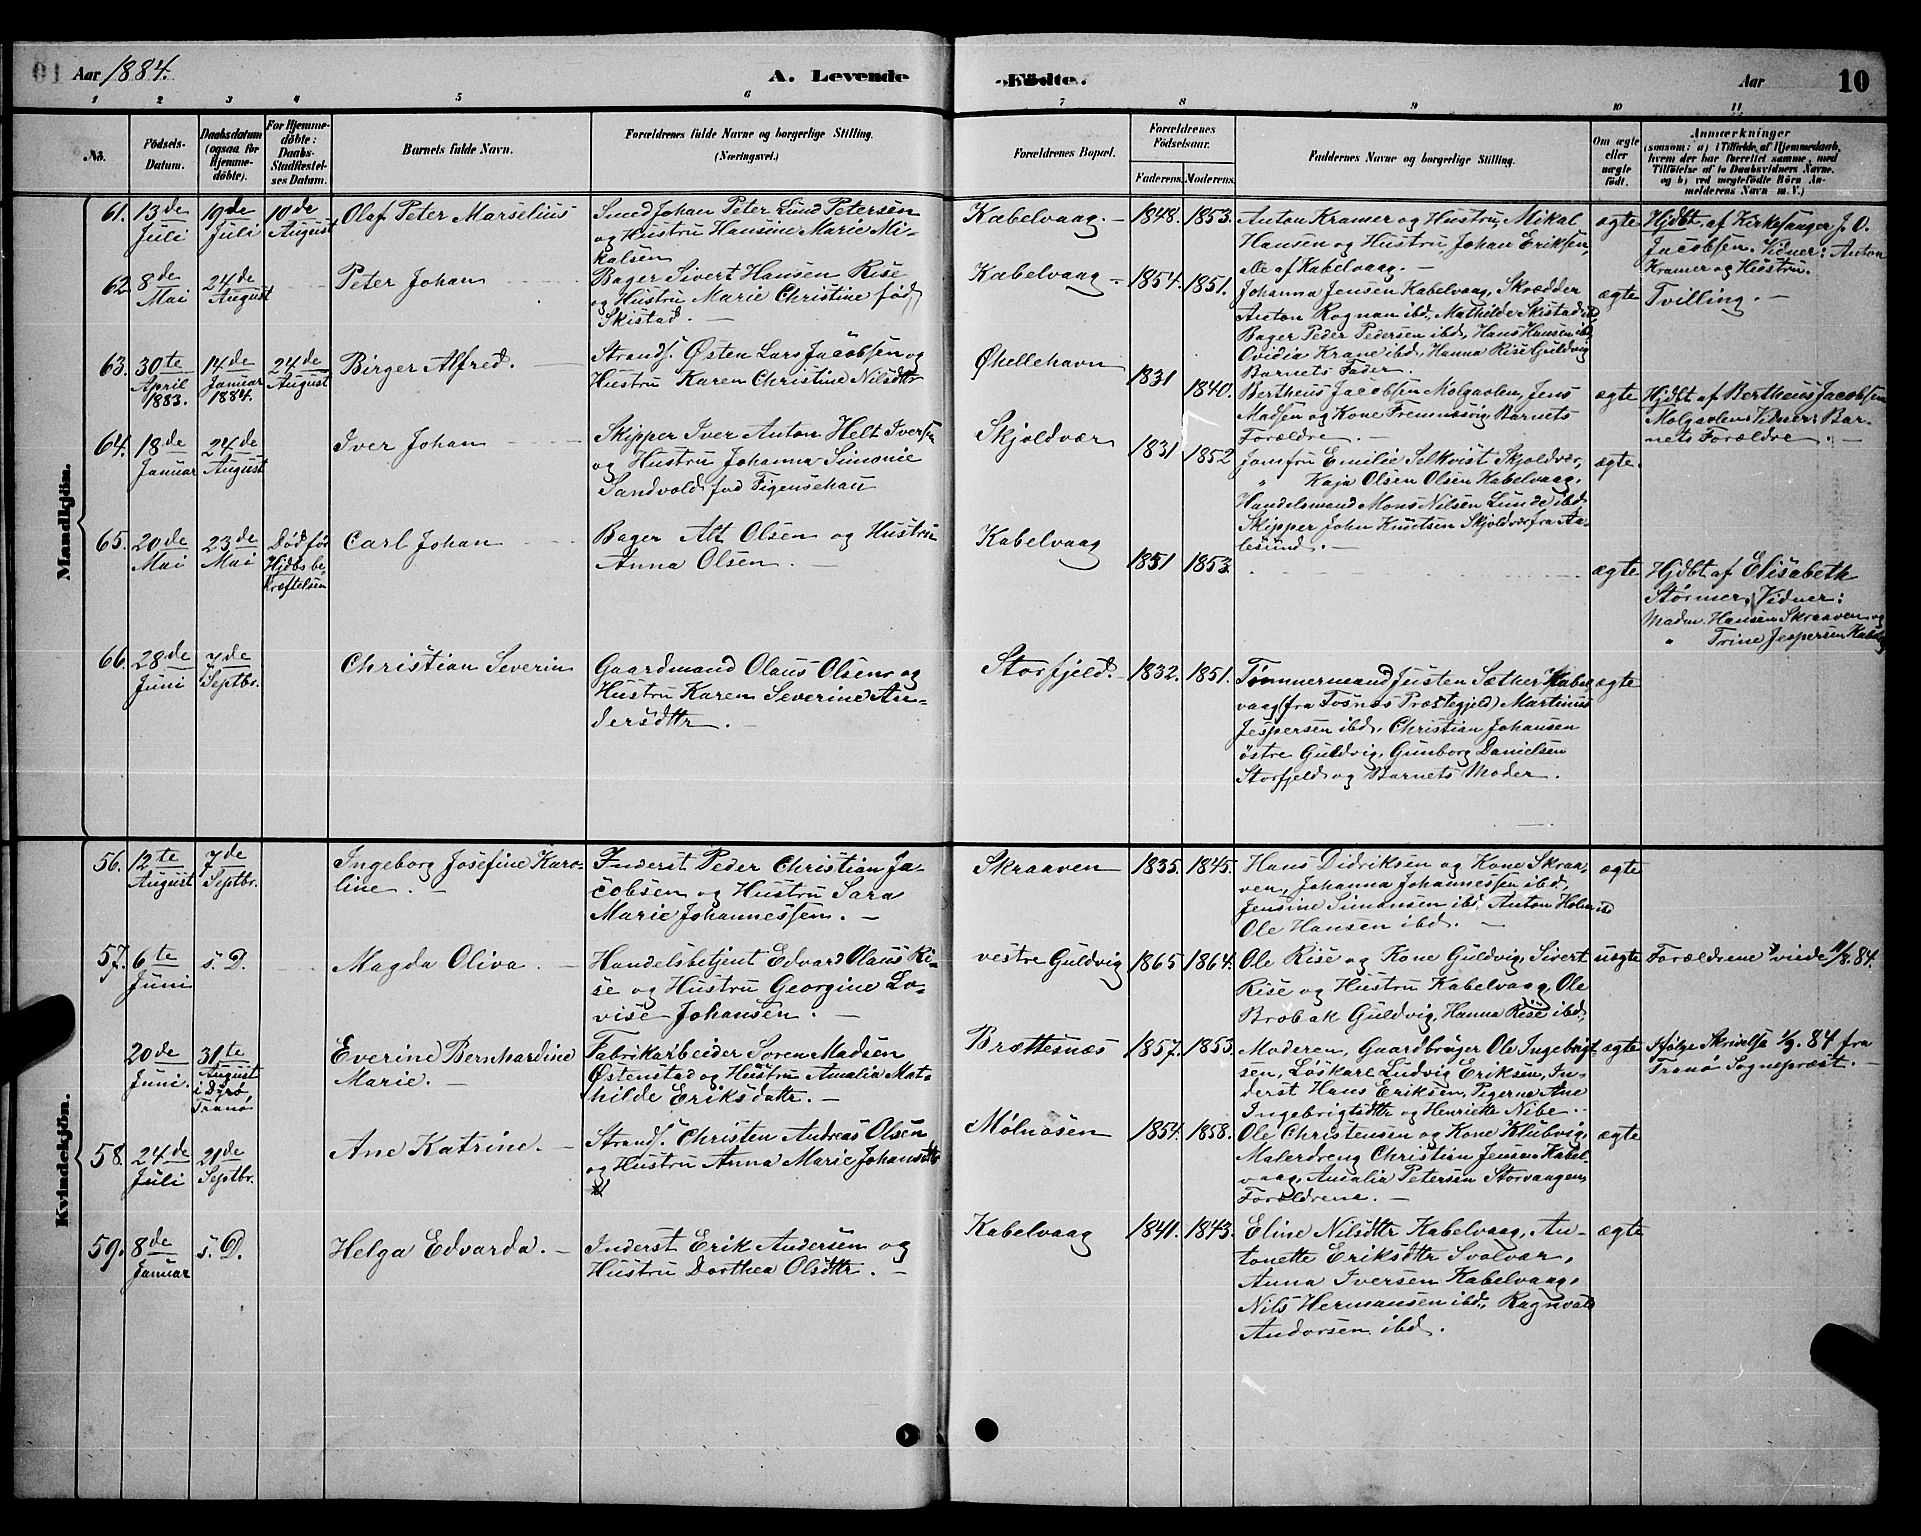 Aar 1884.
A. Levende
Födte.
Aar
10
1 2 3 4 5 6 7 8 9 10 11
No.
Födsels-
Datum.
Daabsdatum
(ogsaa for
Hjemme-
döbte).
For Hjemme-
döbte:
Daabs-
Stadfæstel-
ses Datum.
Barnets fulde Navn.
Forældrenes fulde Navne og borgerlige Stilling.
(Næringsvei.)
Forældrenes Bopæl.
Forældrenes
Födselsaar.
Faderens.
Moderens.
Faddernes Navne og borgerlige Stilling.
Om ægte
eller
uægte
födt.
Anmærkninger
(saasom: a) i Tilfælde af Hjemmedaab,
hvem der har forrettet samme, med
Tilföielse af to Daabsvidners Navne.
og b) ved uægtefödte Börn An-
melderens Navn m. V.)
Mandkjön.
61. 13de Juli
19de Juli
10de August
Olaf Peter Marselius
Smed Johan Peter Lund Petersen
og Hustru Hansine Marie Mi-
kalsen
Kabelvaag. 1848. 1853.
Anton Kramer og Hustru, Mikal
Hansen og Hustru, Johan Eriksen,
alle af Kabelvaag. –
ægte
Hjdbt. af Kirkesanger J. O.
Jacobsen. Vidner: Anton
Kramer og Hustru.
62. 8de Mai
24de August
Peter Johan
Bager Sivert Hansen Rise
og Hustru Marie Christine fød
Skistad. –
Kabelvaag – 1854. 1851.
Johanna Jensen Kabelvaag, Skrædder
Anton Rognan ibd, Mathilde Skistad ibd,
Bager Peder Pedersen ibd, Hans Hansen ibd
Ovidia Krane ibd, Hanna Rise Guldvig
Barnets Fader.
ægte
Tvilling. –
63. 30te April 1883.
14de Januar 1884.
24de August
Birger Alfred. –
Strands. Østen Lars Jacobsen og
Hustru Karen Christine Nilsdttr
Øhellehavn
1831 1840.
Bertheus Jacobsen Molgaolen, Jens
Madsen og Kone Fremnesvig Barnets
Forældre. –
ægte
Hjdbt af Bertheus Jacobsen
Molgaolen Vidner: Bar-
nets Forældre. –
64. 18de Januar
24de August
Iver Johan
Skipper Iver Anton Helt Iversen
og Hustru Johanna Simonie
Sandvold fød Figenschau
Skjoldvær
1831 1852
Jomfru Emilie Selkvist Skjoldvær,
" Kaja Olsen Olsen Kabelvaag,
Handelsmand Mons Nilsen Lunde ibd
Skipper John Knutsen Skjoldvær fra Aa-
lesund. –
ægte.
65. 20de Mai
23de Mai
Død før
Hjdbs be-
kræftelsen
Carl Johan
Bager Alt Olsen og Hustru
Anna Olsen. –
Kabelvaag
1851 1853.
ægte
Hjdbt af Elisabeth
Størmer, Vidner:
Madm. Hansen Skraaven og
" Trine Jespersen Kabelv
66. 28de Juni
7de Septbr.
Christian Severin
Gaardmand Olaus Olsen og
Hustru Karen Severine An-
dersdttr. –
Storfjeld. – 1832. 1851.
Tømmermand Justen Sæther Kabel-
vaag (fra Fosnes Præstegjeld) Martinus
Jespersen ibd, Christian Johansen
östre Guldvig, Gunborg Danielsen
Storfjeld og Barnets Moder.
ægte
Kvindekjön.
56. 12te August
7de Septbr.
Ingeborg Josefine Karo-
line. –
Inderst Peder Christian Ja-
cobsen og Hustru Sara
Marie Johannessen. –
Skraaven 1835. 1845.
Hans Didriksen og Kone Skraa-
ven, Johanna Johannessen ibd,
Jensine Simonsen ibd, Anton Holm ibd
Ole Hansen ibd. –
ægte
57. 6te Juni
s. D.
Magda Oliva. –
Handelsbetjent Edvard Olaus Ri-
se og Hustru Georgine Lo-
vise Johansen. –
vestre Guldvig 1865 1864.
Ole Rise og Kone Guldvig, Sivert
Rise og Hustru Kabelvaag, Ole
Brobak Guldvig, Hanna Rise ibd,
uægte
Forældrene viede 11/8. 84.
20de Juni.
31te August
i Dyrö,
Tranö
Everine Bernhardine
Marie. –
Fabrikarbeider Søren Madsen
Østenstad og Hustru Amalia Mat-
hilde Eriksdattr. –
Brættesnæs 1857. 1853.
Moderen, Gaardbruger Ole Ingebrigt-
sen, Løskarl Ludvig Eriksen, In-
derst Hans Eriksen, Pigerne Ane
Ingebrigtsdttr og Henriette Nibe.
ægte
Ifølge Skrivelse /9. 84 fra
Tranø Sognepræst. –
58. 24de Juli
21de Septbr.
Ane Katrine. –
Strands. Christen Andreas Olsen
og Hustru Anna Marie Johansdttr
Mølnosen 1854. 1858.
Ole Christensen og Kone Klubvig,
Malerdreng Christian Jensen Kabel-
vaag, Amalia Petersen Storvaagen,
Forældrene. –
ægte
59. 8de Januar
s. D.
Helga Edvarda. –
Inderst Erik Andersen og
Hustru Dorthea Olsdttr. –
Kabelvaag 1841. 1843.
Eline Nilsdttr Kabelvaag, An-
tonette Eriksdttr Svolvær,
Anna Iversen Kabelvaag,
Nils Hermansen ibd, Ragnvald
Andorsen ibd.
ægte